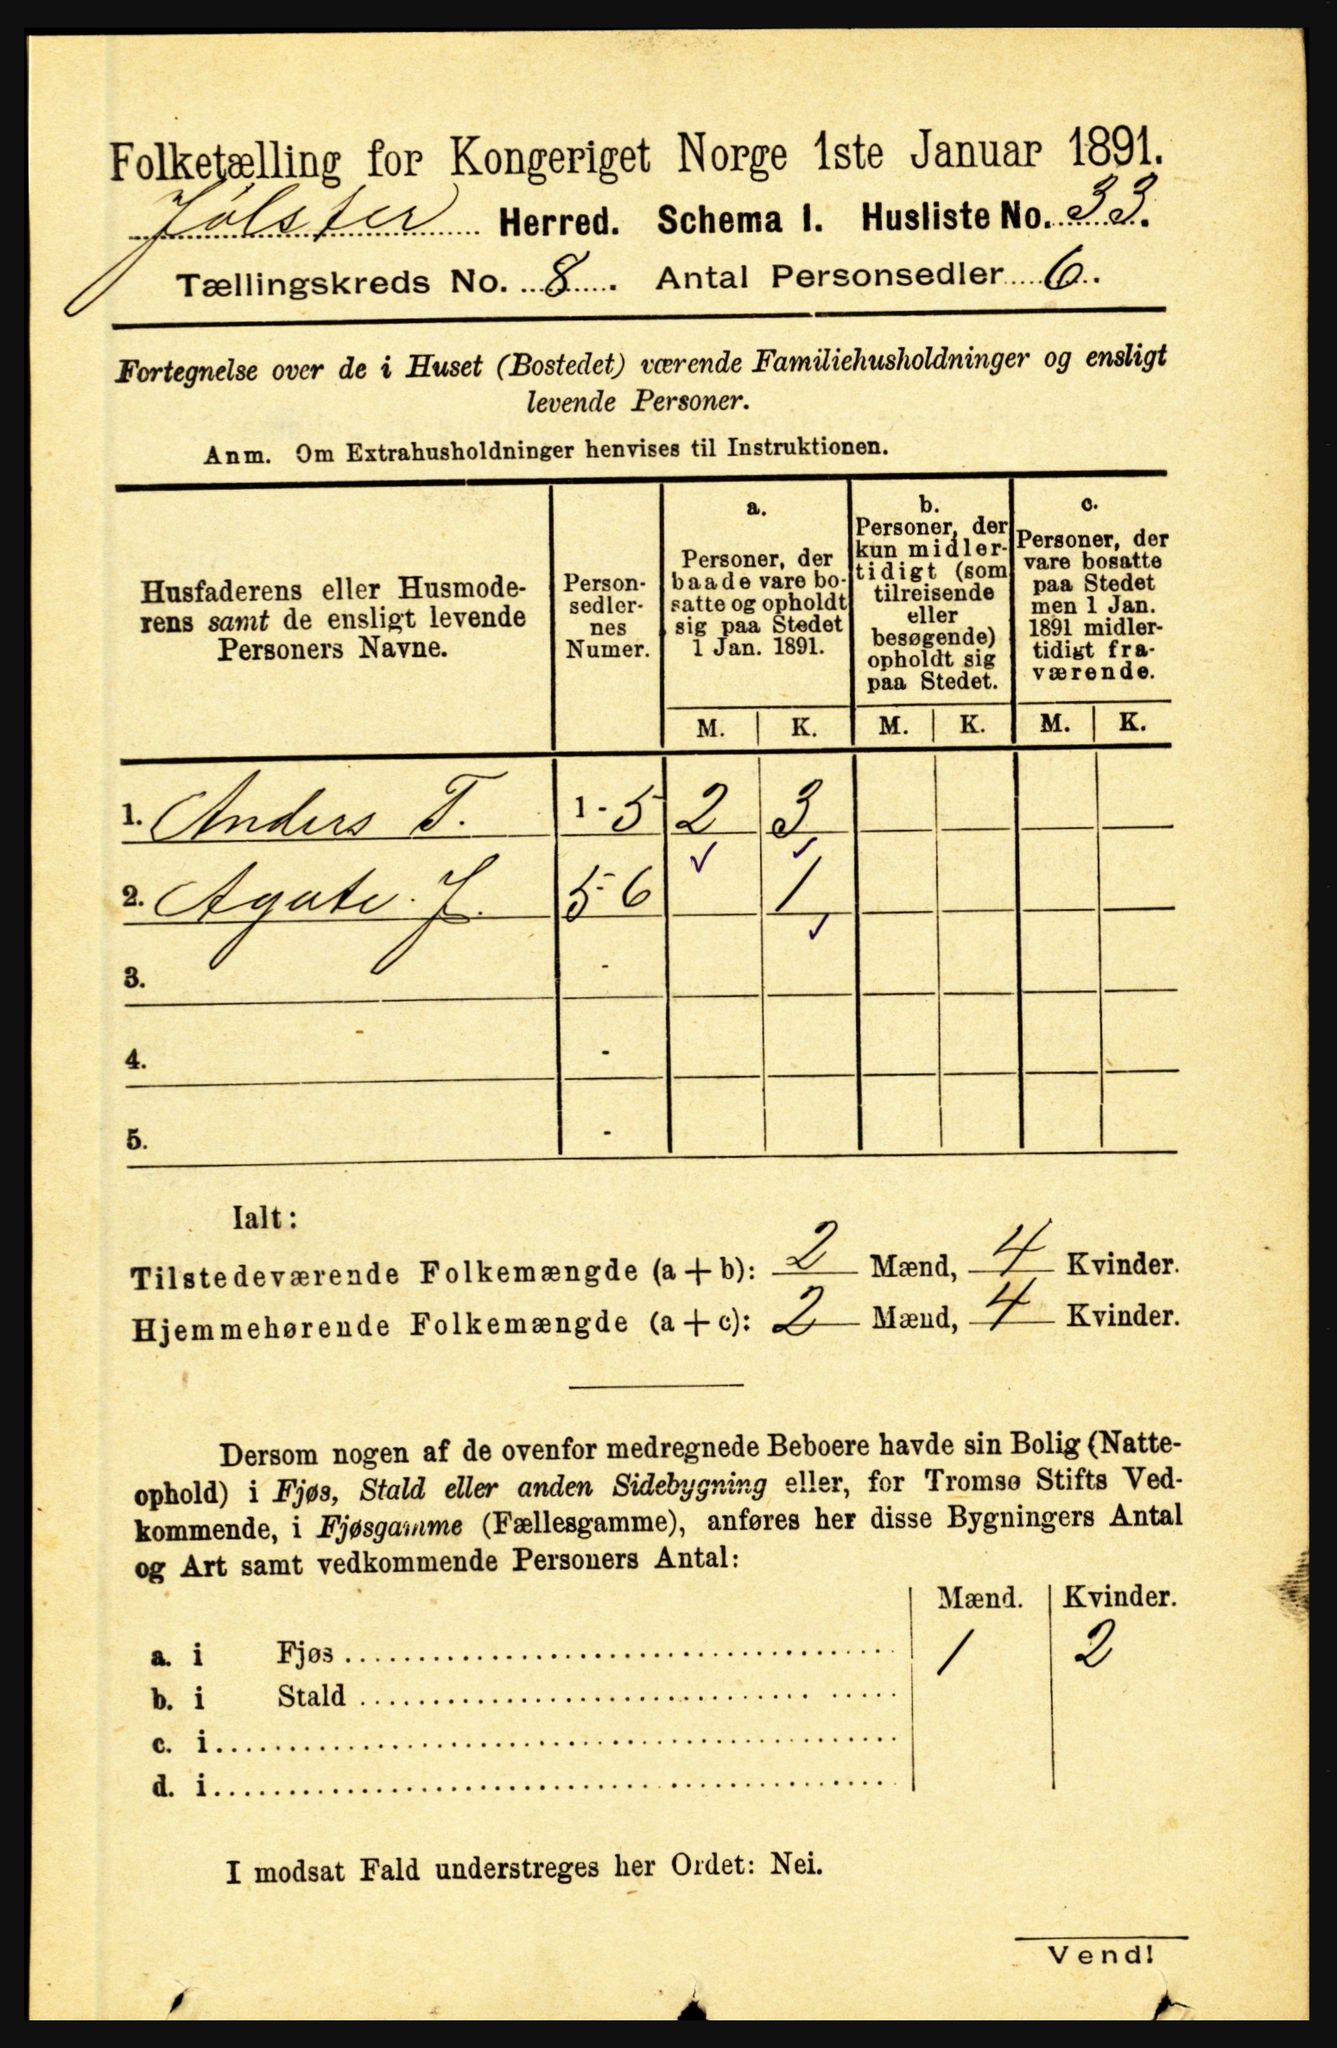 Folketælling for Kongeriget Norge 1ste Januar 1891.
Jølster Herred. Schema I. Husliste No. 33.
Tællingskreds No. 8. Antal Personsedler 6.
Fortegnelse over de i Huset (Bostedet) værende Familiehusholdninger og ensligt
levende Personer.
Anm. Om Extrahusholdninger henvises til Instruktionen.
Husfaderens eller Husmode-
rens samt de ensligt levende
Personers Navne.
Person-
sedler-
nes
Numer.
a.
Personer, der
baade vare bo-
satte og opholdt
sig paa Stedet
1 Jan. 1891.
b.
Personer, der
kun midler-
tidigt (som
tilreisende
eller
besøgende)
opholdt sig
paa Stedet.
c.
Personer, der
vare bosatte
paa Stedet
men 1 Jan.
1891 midler-
tidigt fra-
værende.
M. K. M. K. M. K.
1. Anders T. 1-5 2 3
2. Agate. J. 5-6 1
3. -
4. -
5. -
Ialt:
Tilstedeværende Folkemængde (a + b): 2 Mænd, 4 Kvinder.
Hjemmehørende Folkemængde (a + c): 2 Mænd, 4 Kvinder.
Dersom nogen af de ovenfor medregnede Beboere havde sin Bolig (Natte-
ophold) i Fjøs, Stald eller anden Sidebygning eller, for Tromsø Stifts Ved-
kommende, i Fjøsgamme (Fællesgamme), anføres her disse Bygningers Antal
og Art samt vedkommende Personers Antal:
Mænd. Kvinder.
a. i Fjøs 1 2
b. i Stald
c. i
d. i
I modsat Fald understreges her Ordet: Nei.
Vend!